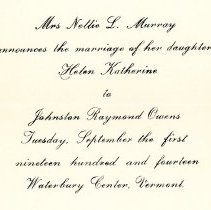 Mrs Nellie L. Murray
announces the marriage of her daughter
Helen Katherine
to
Johnston Raymond Owens
Tuesday, September the first
nineteen hundred and fourteen
Waterbury Center, Vermont.